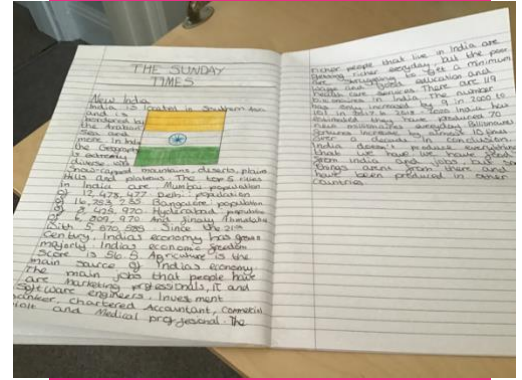 THE SUNDAY
TIMES
New India
India is located in Southern Asia
and is
bordered by
the Arabian
Sea and
more. In India
the Geography
is extremely
diverse with
Snow-capped mountains, deserts, plains
Hills and plateaus. The top 5 cities
in India are Mumbai population
of 12,478,447 Delhi population
of 16,753,235 Bangalore population
of 8,425,970 Hyderabad population
of 6,809,970 And finaly
With 5,570,585. Since the 21st
Century, India's economy has grown
majorly. India's economic freedom
Score is 56.5 Agriculture is the
main source of India's economy.
The main jobs that people have
are Marketing professionals, IT and
Software engineers, Investment
banker, Chartered Accountant,
and Medical professional. The
richer people that live in India are
getting richer everyday, but the poor
are struggling to get a minimum
wage and jobs education and
health care services. There are 119
billionaires in India. The number
has only increased by 9 in 2000 to
101 in 2017. 2018 - 2022 India has
estimated they produced 70
new millionaires everyday. Billionaires
fortunes increase by almost 10 times
over a decade. In conclusion,
India doesn't produce everything
that we have we have
from India and jobs but some
things arent from there and
have been produced in other
countries